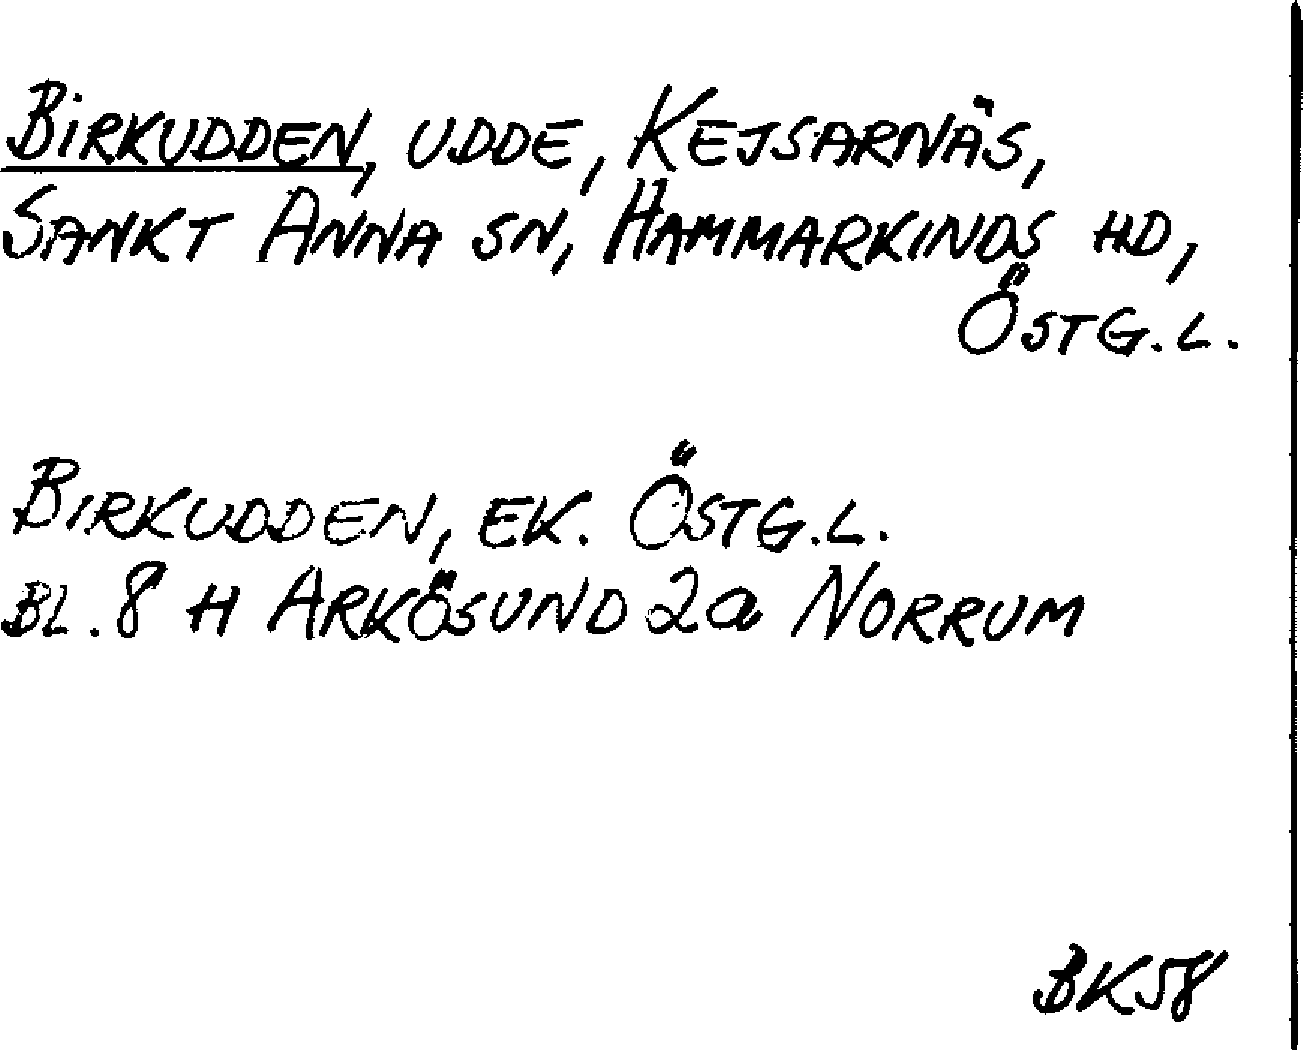 BIRKUDDEN, UDDE, KEJSARNÄS,
SANKT ANNA SN, HAMMARKINDS HD,
ÖSTG.L.
BIRKUDDEN, EK. ÖSTG.L.
BL. 8 H ARKÖSUND 2a NORRUM
BK58